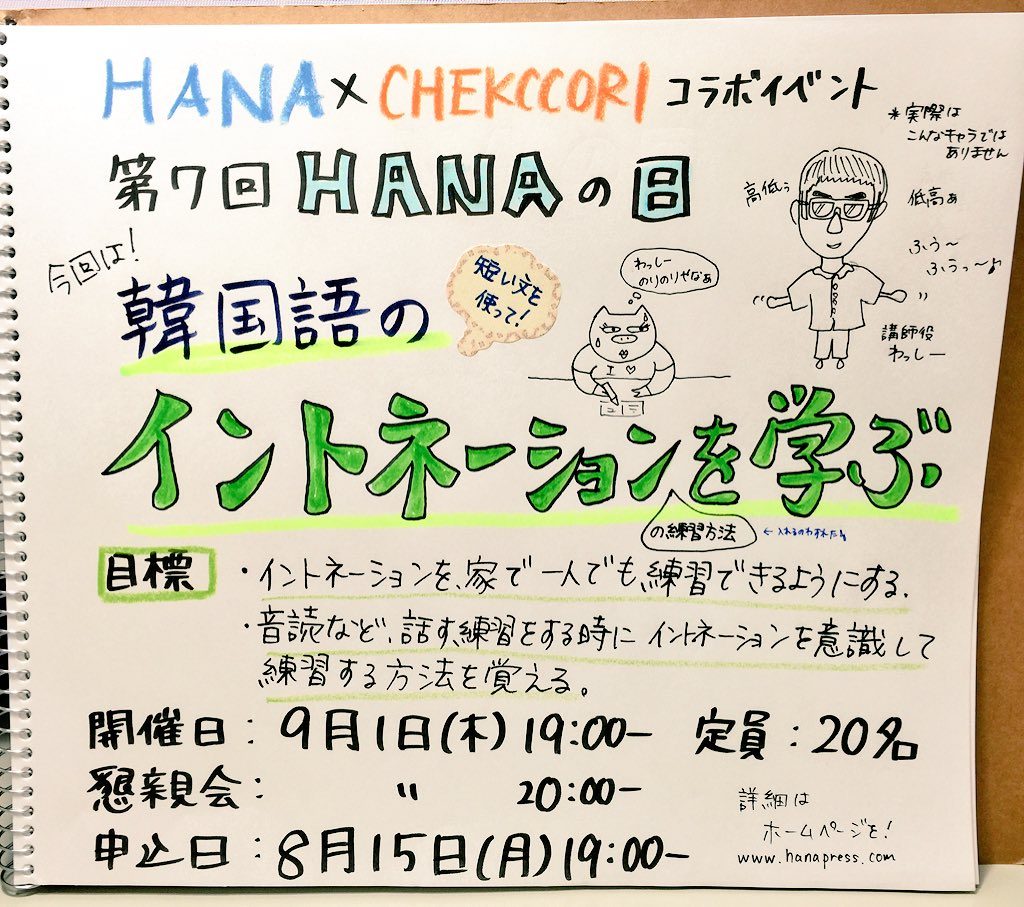 HANA×CHEKCCORI コラボイベント
*実際は
こんなキャラでは
ありません
第7回HANAの日
高低ぅ
低高ぁ
ふぅ〜
ふぅっ〜♪
講師役
わっしー
今回は!
韓国語の
短い文を
使って!
わっしー
のりのりやなぁ
I ♡
イントネーションを学ぶ
の練習方法
目標
・イントネーションを、家で一人でも練習できるようにする.
・音読など、話す練習をする時にイントネーションを意識して
練習する方法を覚える。
開催日:9月1日(木)19:00− 定員:20名
懇親会: 〃 20:00−
申込日:8月15日(月)19:00−
詳細は
ホームページを!
www.hanapress.com